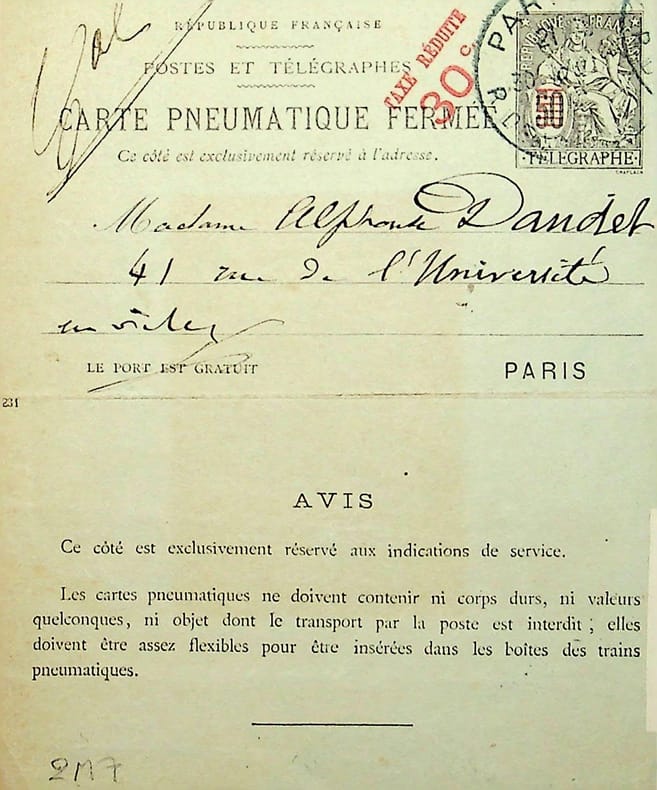 RÉPUBLIQUE FRANÇAISE
POSTES ET TÉLÉGRAPHES
TAXE RÉDUITE
30 c.
CARTE PNEUMATIQUE FERMÉE
Ce côté est exclusivement réservé à l'adresse.
PAR
REPUBLIQUE FRANÇAISE
50
TÉLÉGRAPHE
CHAPLAIN
Madame Alphonse Daudet
41 rue de l'Université
LE PORT EST GRATUIT
PARIS
231
AVIS
Ce côté est exclusivement réservé aux indications de service.
Les cartes pneumatiques ne doivent contenir ni corps durs, ni valeurs
quelconques, ni objet dont le transport par la poste est interdit ; elles
doivent être assez flexibles pour être insérées dans les boîtes des trains
pneumatiques.